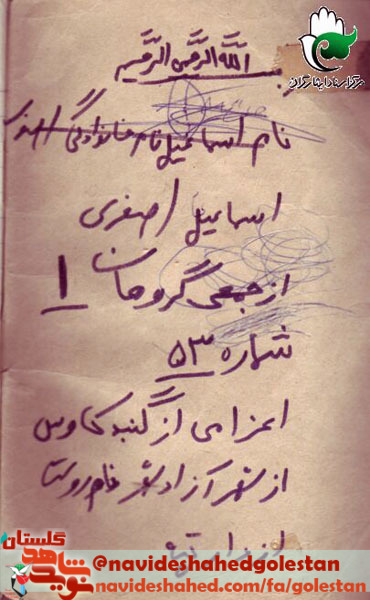 بسم الله الرحمن الرحیم
مرکز اسناد ایثارگران
نام اسماعیل نام خانوادگی اصغری
اسماعیل اصغری
از جمعی گروهان ۱
شماره ۵۳
اعزامی از گنبد کاوس
از شهر آزادشهر نام روستا
گلستان
نوید شاهد
@navideshahedgolestan
navideshahed.com/fa/golestan